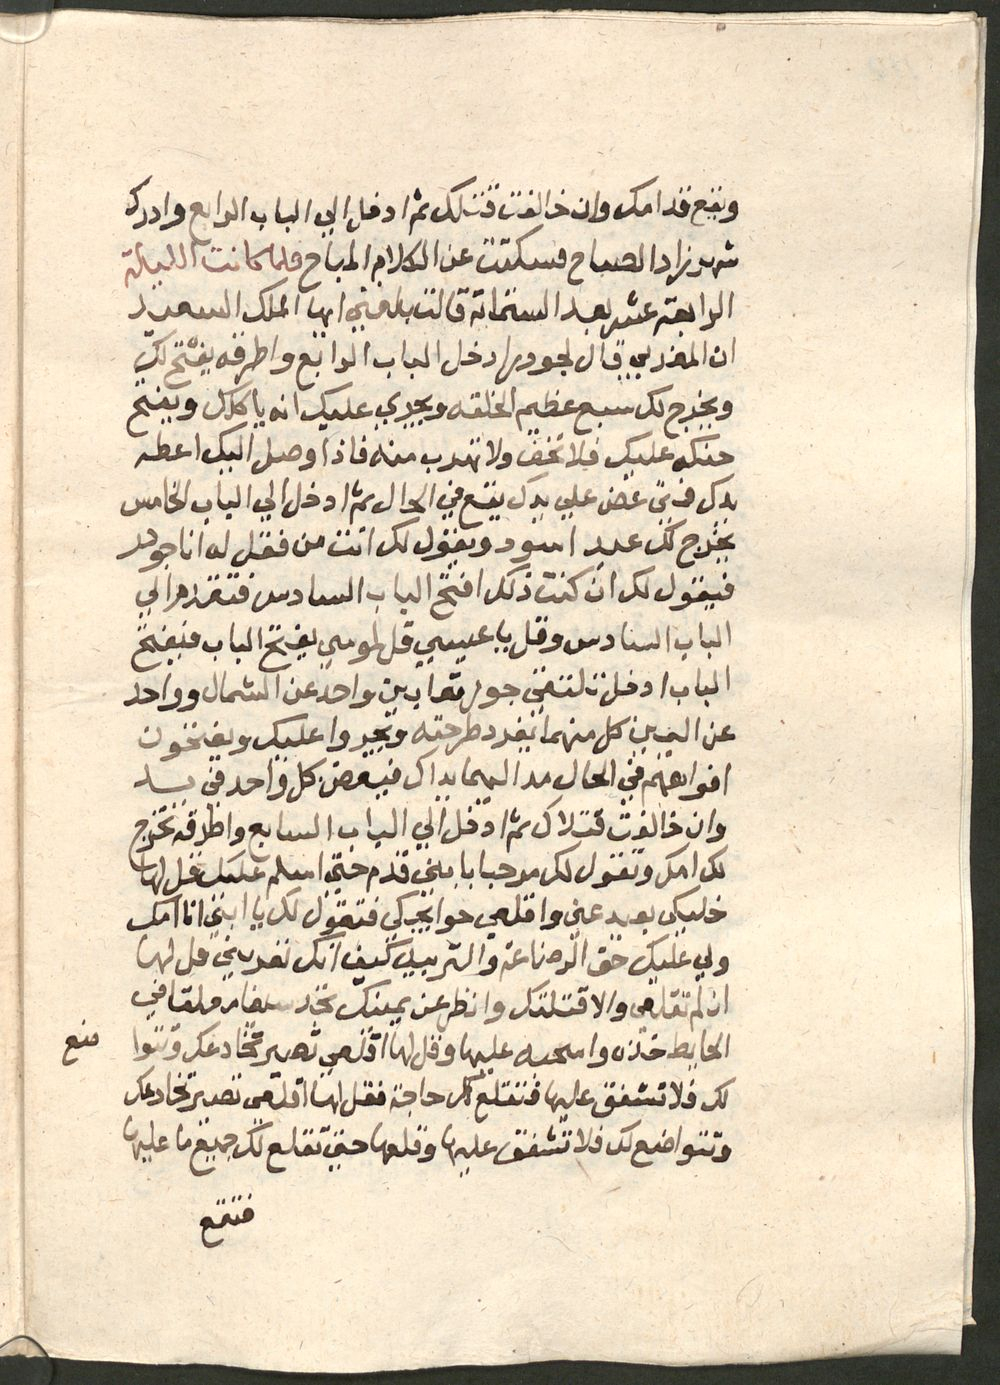 ويقع قدامك وان خالفت قتلك ثم ادخل الي الباب الرابع وادرك
شهرزاد الصباح فسكتت عن الكلام المباح فلما كانت الليلة
الرابعة عشر بعد الستماية قالت بلغني ايها الملك السعيد
ان المغربي قال لجودر ادخل الباب الرابع واطرقه يفتح لك
ويخرج لك سبع عظيم الخلقه ويجري عليك انه ياكلك ويفتح
حنكه عليك فلا تخف ولا تهرب منه فاذا وصل اليك اعطه
يدك فمتي عض علي يدك يقع في الحال ثم ادخل الي الباب الخامس
يخرج لك عبد اسود ويقول لك انت من فقل له انا جودر
فيقول لك ان كنت ذلك افتح الباب السادس فتقدم الي
الباب السادس وقل يا عيسي قل لموسي يفتح الباب فيفتح
الباب ادخل تلتقي جوز تعابين واحد عن الشمال وواحد
عن اليمين كل منهما يفرد طرحته ويجروا عليك ويفتحون
افواههم في الحال مد اليهما يداك فيعض كل واحد في يد
وان خالفت قتلاك ثم ادخل الي الباب السابع واطرقه تخرج
لك امك وتقول لك مرحبا يا ابني قدم حتي اسلم عليك فقل لها
خليكي بعيد عني واقلعي حوايجكي فتقول لك يا ابني انا امك
ولي عليك حق الرضاعة والتربيه كيف انك تعريني قل لها
ان لم تقلعي والا قتلتك وانظر عن يمينك تجد سيفا معلقا في
الحايط خذه واسحبه عليها وقل لها اقلعي تصير تخادعك وتتوا
ضع
لك فلا تشفق عليها فتقلع لك حاجة فقل لها اقلعي تصير تخادعك
وتتواضع لك فلا تشفق عليها وقلعها حتي تقلع لك جميع ما عليها
فتقع